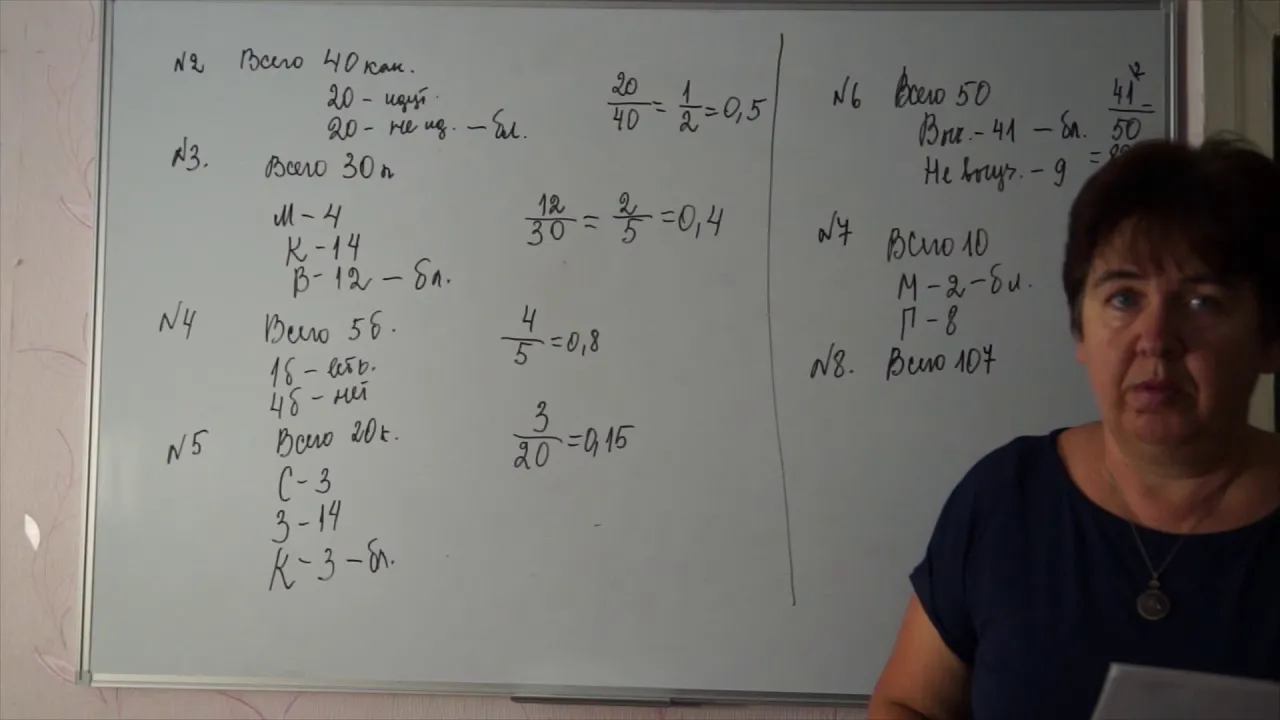 №2 Всего 40 кан.
20 – идут.
20 – не ид. – бл.
20/40 = 1/2 = 0,5
№3. Всего 30 п
М – 4
К – 14
В – 12 – бл.
12/30 = 2/5 = 0,4
№4 Всего 5б.
1б – есть.
4б – нет
4/5 = 0,8
№5 Всего 20к.
С – 3
З – 14
К – 3 – бл.
3/20 = 0,15
№6 Всего 50
– 41 – бл.
Не выуч. – 9
41/50
=
№7 Всего 10
М – 2 – бл.
П – 8
№8. Всего 107